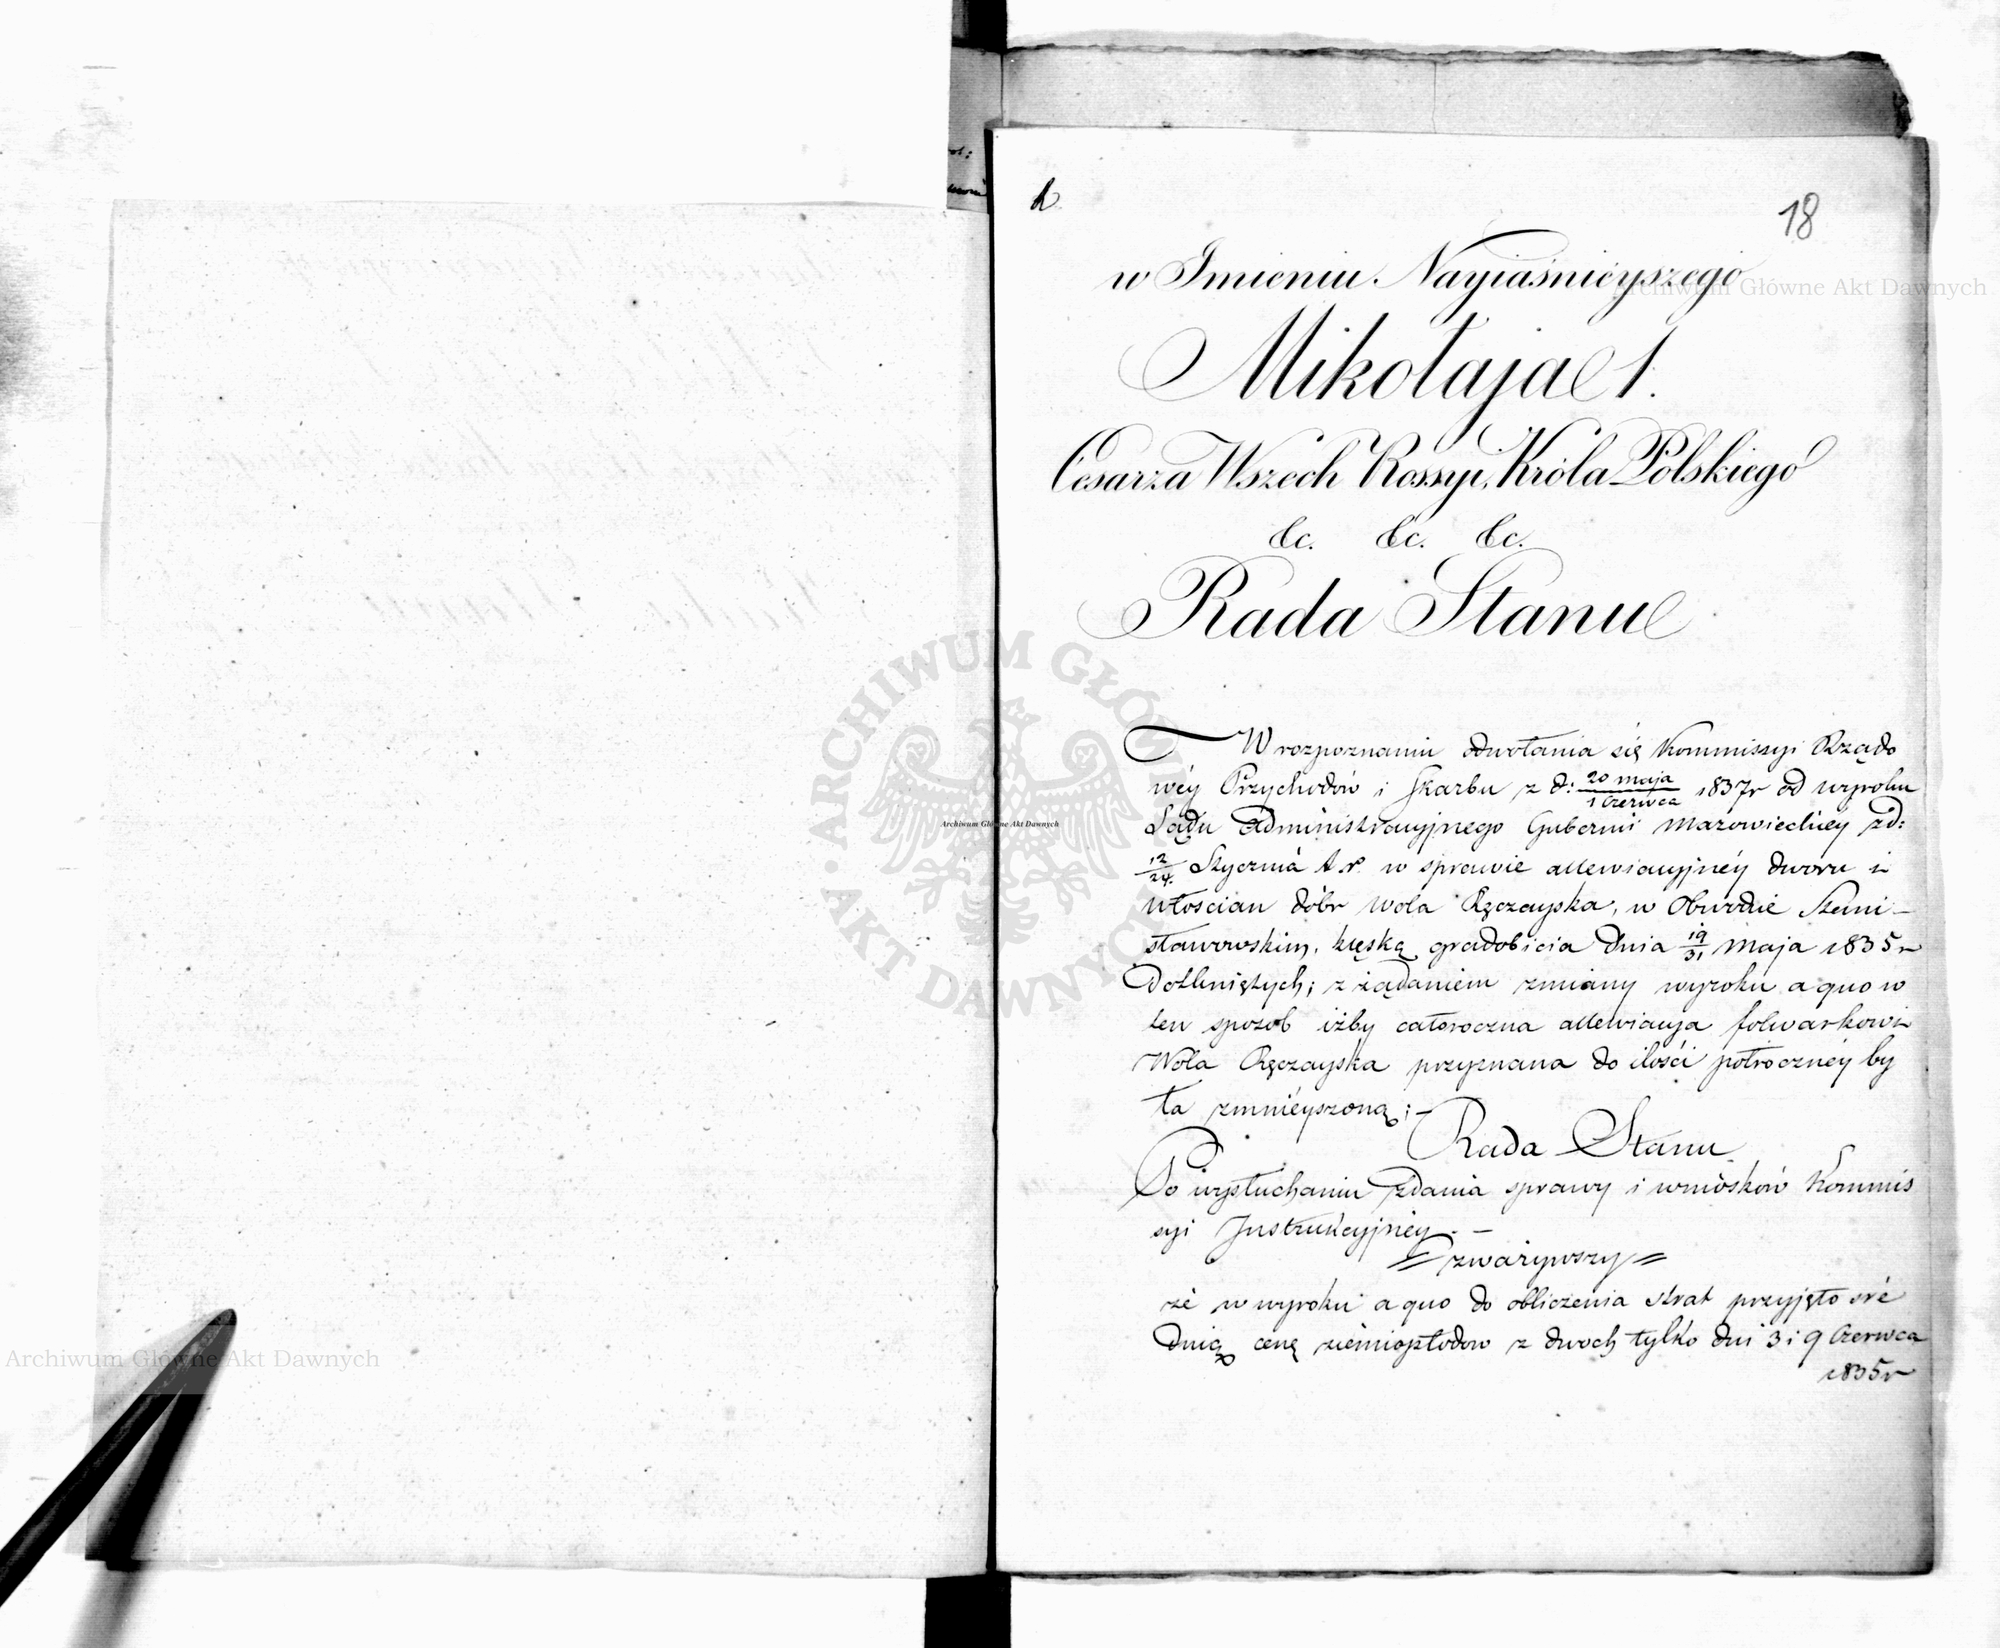 18
w Imieniu Nayiaśnieyszego
Mikołaja 1.
Cesarza Wszech Rossyi, Króla Polskiego
&c. &c. &c.
Rada Stanu
W rozpoznaniu odwołania się Kommissyi Rządo
wéy Przychodów i Skarbu z d: 20 maja / 1 Czerwca 1837r od wyroku
Sądu Administracyjnego Gubernii Mazowieckiey z d:
12/24. Stycznia t. r. w sprawie allewiacyjnéy dworu i
włościan dóbr Wola Ręczayska, w Obwodzie Stani-
sławowskim, klęską gradobicia dnia 19/31 Maja 1835r
dotkniętych; z żądaniem zmiany wyroku a quo w
ten sposób iżby całoroczna allewiacya folwarkowi
Wola Ręczayska przyznana do ilości półrocznéy by
ła zmnieyszoną;-
Rada Stanu
Po wysłuchaniu zdania sprawy i wniosków Kommis
syi Instrukcyjnéy. -
= zważywszy =
że w wyroku a quo do obliczenia strat przyjęto śre
dnią cenę ziemiopłodow z dwoch tylko dni 3 i 9 Czerwca
1835r
Archiwum Główne Akt Dawnych
Archiwum Główne Akt Dawnych
Archiwum Główne Akt Dawnych
ARCHIWUM GŁÓWNE AKT DAWNYCH